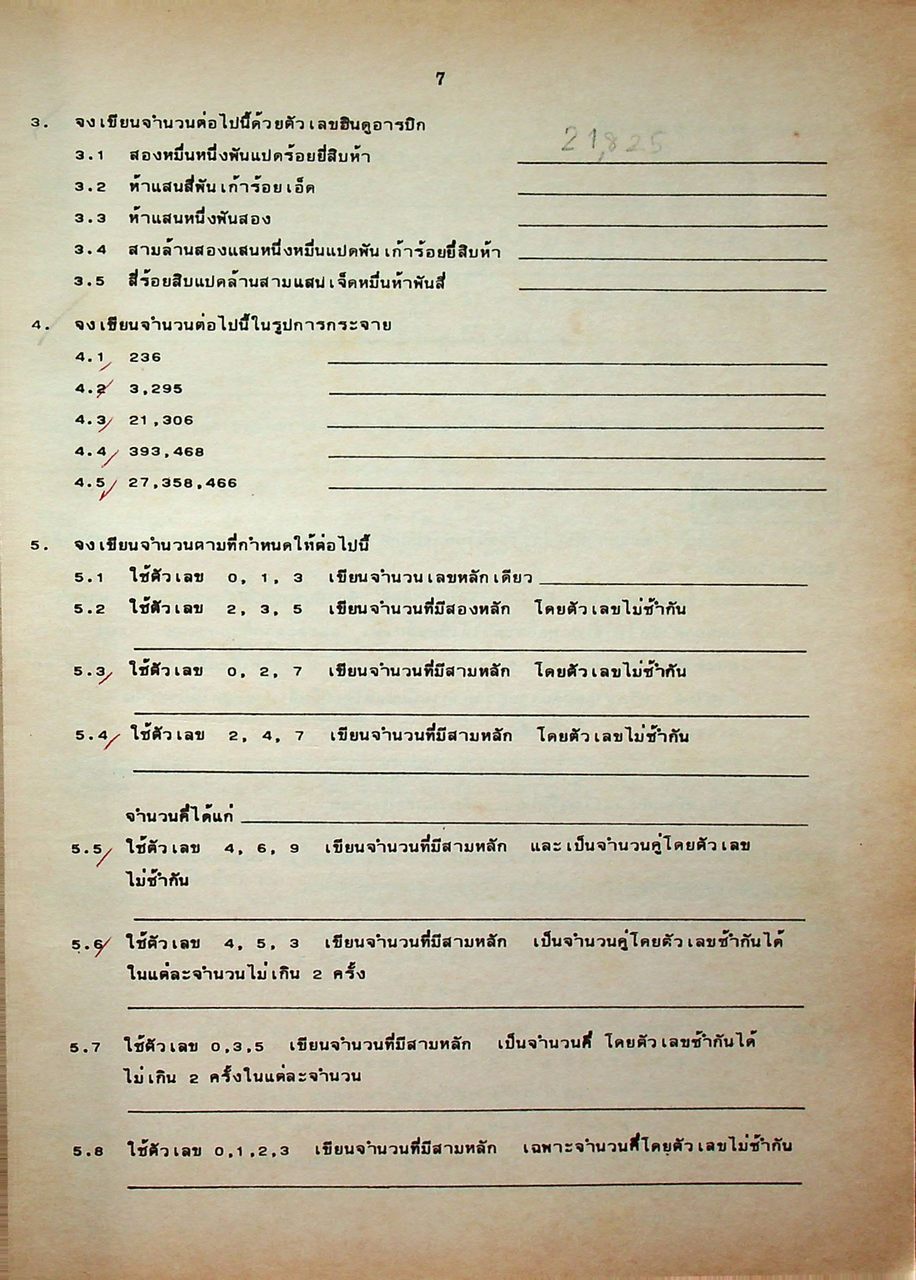 7
3. จงเขียนจำนวนต่อไปนี้ด้วยตัวเลขฮินดูอารบิก
3.1 สองหมื่นหนึ่งพันแปดร้อยยี่สิบห้า 21,825
3.2 ห้าแสนสี่พันเก้าร้อยเอ็ด
3.3 ห้าแสนหนึ่งพันสอง
3.4 สามล้านสองแสนหนึ่งหมื่นแปดพันเก้าร้อยยี่สิบห้า
3.5 สี่ร้อยสิบแปดล้านสามแสนเจ็ดหมื่นห้าพันสี่
4. จงเขียนจำนวนต่อไปนี้ในรูปการกระจาย
4.1 236
4.2 3,295
4.3 21,306
4.4 393,468
4.5 27,358,466
5. จงเขียนจำนวนตามที่กำหนดให้ต่อไปนี้
5.1 ใช้ตัวเลข 0, 1, 3 เขียนจำนวนเลขหลักเดียว
5.2 ใช้ตัวเลข 2, 3, 5 เขียนจำนวนที่มีสองหลัก โดยตัวเลขไม่ซ้ำกัน
5.3 ใช้ตัวเลข 0, 2, 7 เขียนจำนวนที่มีสามหลัก โดยตัวเลขไม่ซ้ำกัน
5.4 ใช้ตัวเลข 2, 4, 7 เขียนจำนวนที่มีสามหลัก โดยตัวเลขไม่ซ้ำกัน
จำนวนคี่ได้แก่
5.5 ใช้ตัวเลข 4, 6, 9 เขียนจำนวนที่มีสามหลัก และเป็นจำนวนคู่โดยตัวเลข
ไม่ซ้ำกัน
5.6 ใช้ตัวเลข 4, 5, 3 เขียนจำนวนที่มีสามหลัก เป็นจำนวนคู่โดยตัวเลขซ้ำกันได้
ในแต่ละจำนวนไม่เกิน 2 ครั้ง
5.7 ใช้ตัวเลข 0,3,5 เขียนจำนวนที่มีสามหลัก เป็นจำนวนคี่ โดยตัวเลขซ้ำกันได้
ไม่เกิน 2 ครั้งในแต่ละจำนวน
5.8 ใช้ตัวเลข 0,1,2,3 เขียนจำนวนที่มีสามหลัก เฉพาะจำนวนคี่โดยตัวเลขไม่ซ้ำกัน